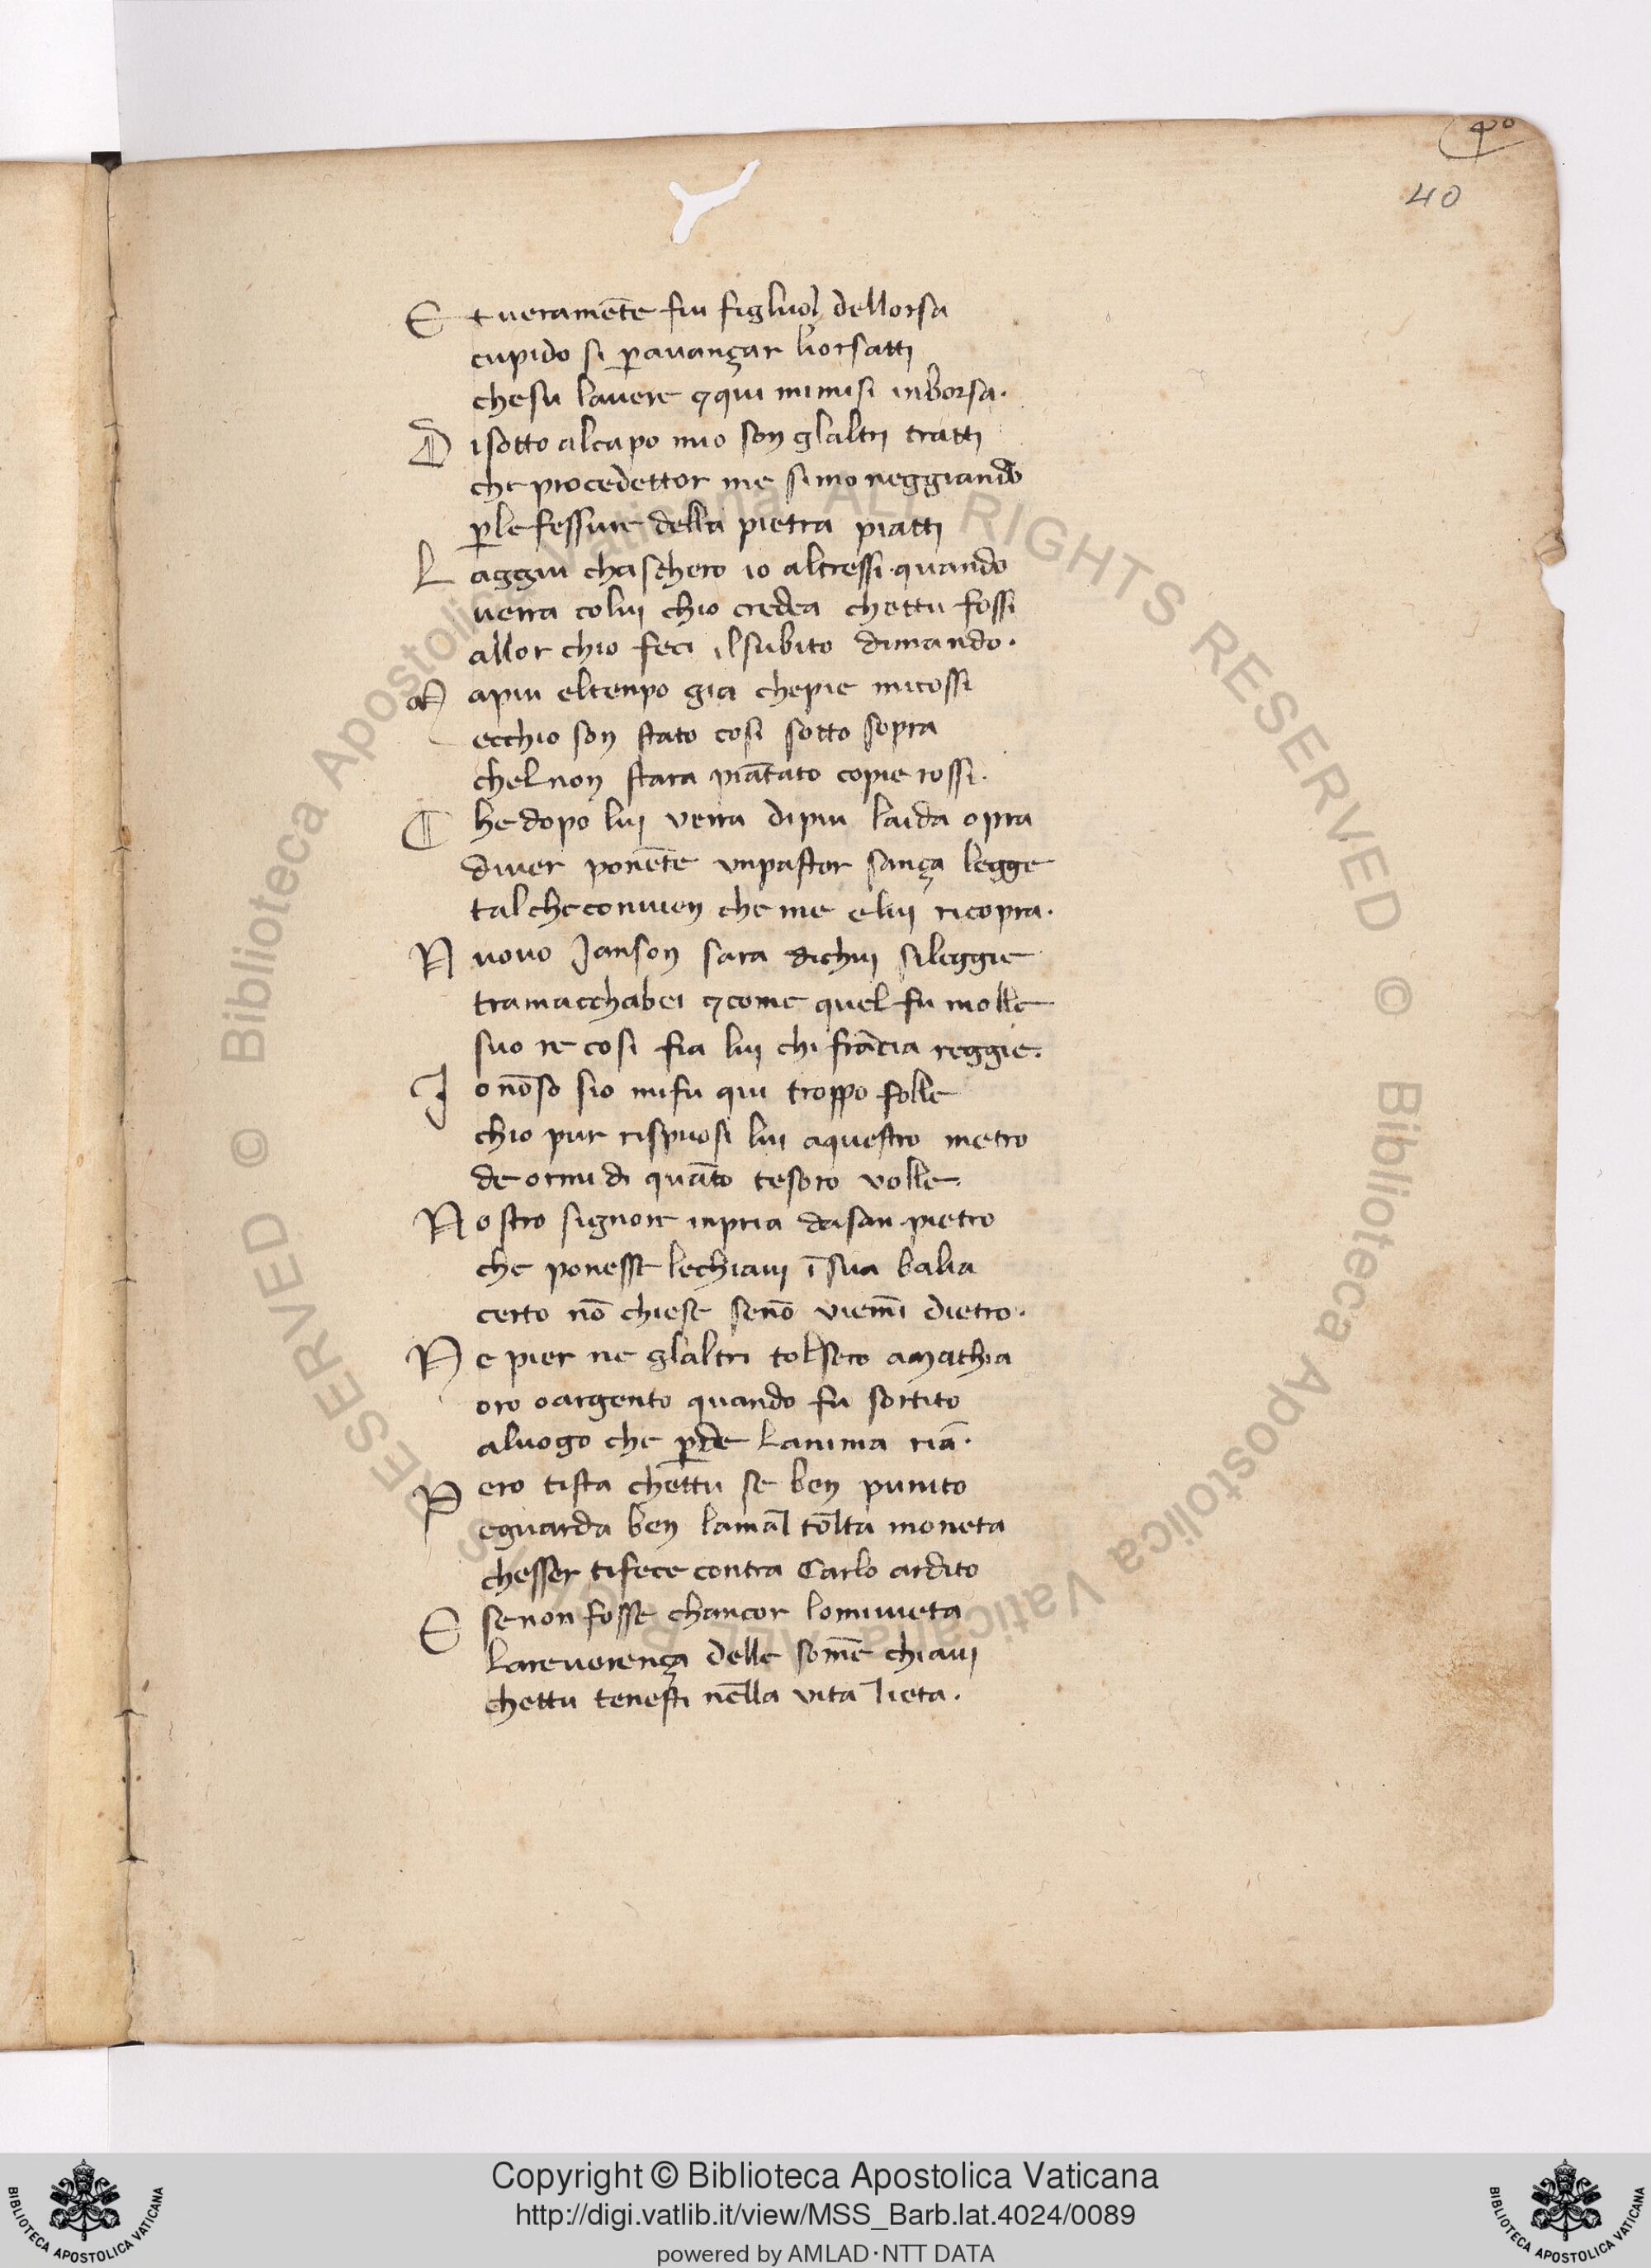 40
40
E t ueramēte fui figluol dellorsa
cupido si ꝑauançar liorsatti
chesu lauere ⁊qui mimisi inborsa.
D isotto alcapo mio son glaltri tratti
che procedettor me simoneggiando
ꝑlefessure della pietra piatti
L aggiu chaschero io altressi.quando
uerra colui chio credea chettu fossi
allor chio feci ilsubito dimando.
M apiu eltenpo gia chepie micossi
ecchio son stato cosi sotto sopra
chelnon stara piātato copie rossi.
C he dopo lui verra dipiu laida opra
diuer ponēte vnpastor sança legge
talcheconuien che me elui ricopra.
N uouo Janson sara dichui sileggie
tramacchabei ⁊come quel fu molle
suo re cosi fia lui chi frācia reggie.
I o nōso sio mifu qui troppo folle
chio pur rispuosi lui aquestro metro
de ormi di quāto tesoro volle.
N ostro signore inpria dasan pietro
che ponesse lechiaui ī sua balia
certo nō chiese senō viemī dietro.
N e pier ne glaltri tolsero amathia
oro oargento quando fu sortito
aluogo che ꝑde lanima riā.
P ero tista chettu se ben punito
eguarda ben lamāl tōlta moneta
chesser tifece contra Carlo ardito
E senon fosse chancor lomiuieta
lareuerença delle somē chiaui
chettu tenesti nēlla vita lieta.
Copyright © Biblioteca Apostolica Vaticana
http://digi.vatlib.it/view/MSS_Barb.lat.4024/0089
powered by AMLAD·NTT DATA
BIBLIOTECA APOSTOLICA VATICANA
BIBLIOTECA APOSTOLICA VATICANA
© Biblioteca Apostolica Vaticana ALL RIGHTS RESERVED © Biblioteca Apostolica Vaticana ALL RIGHTS RESERVED